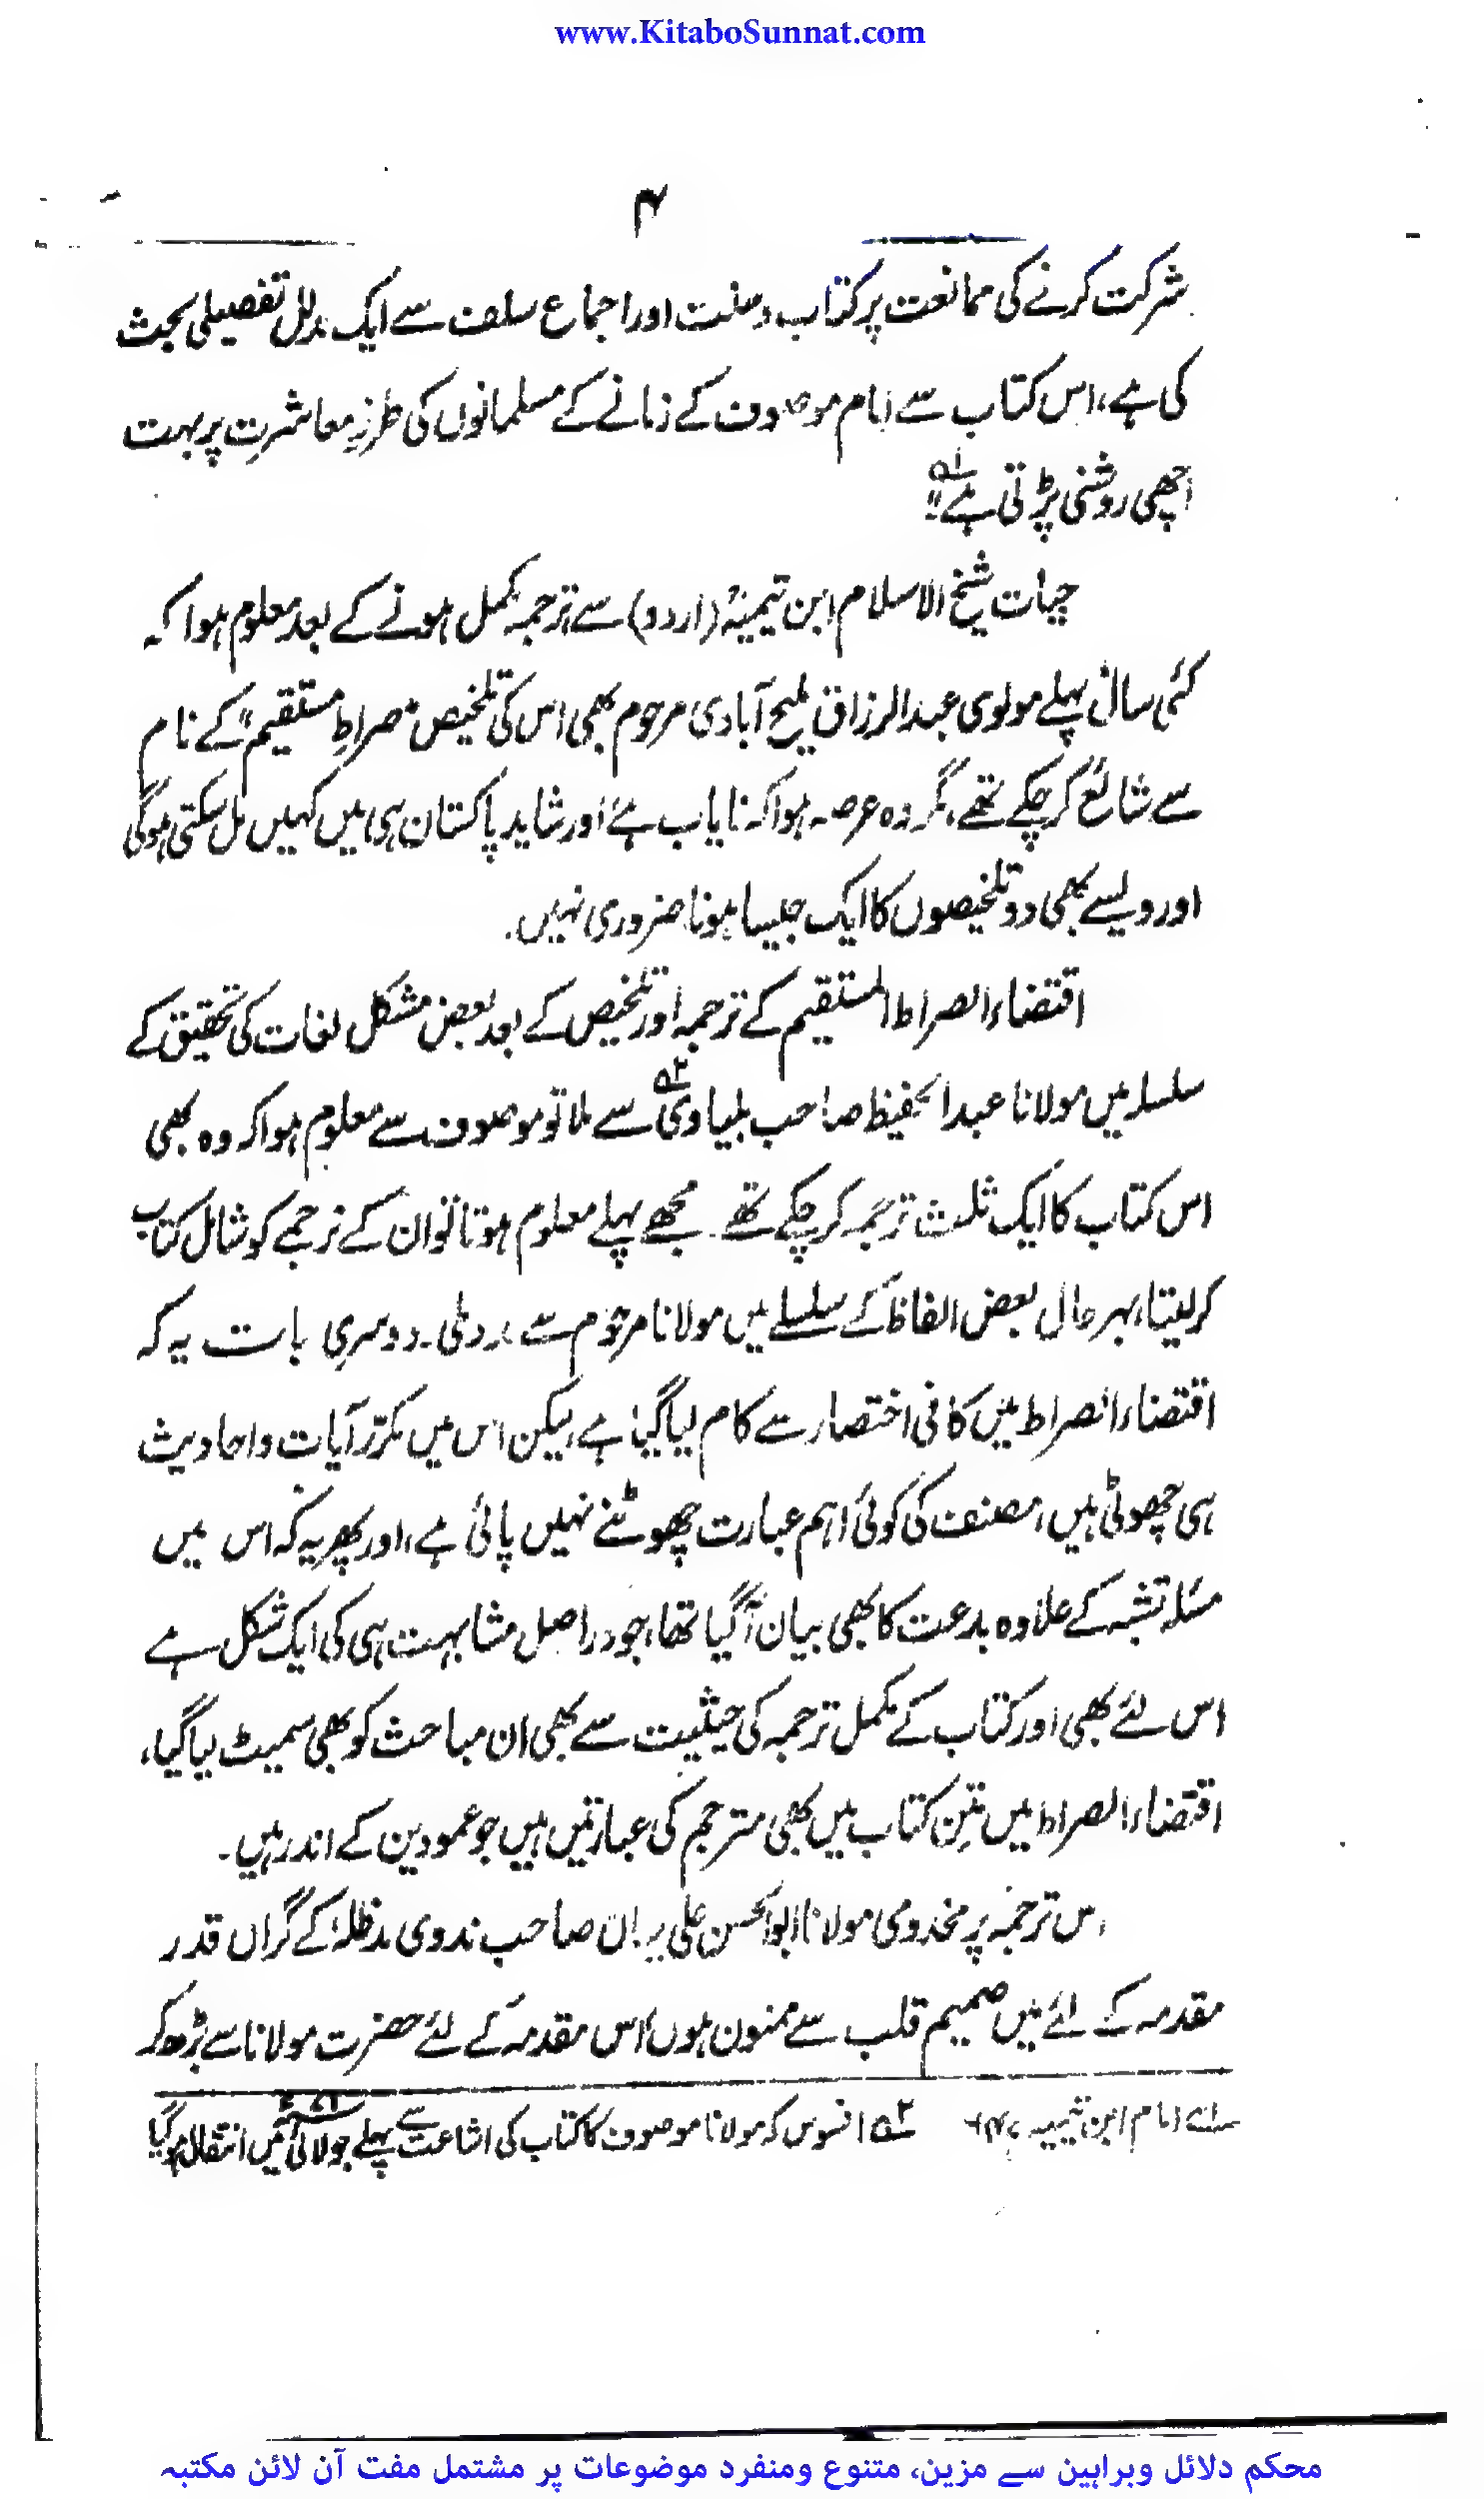 www.KitaboSunnat.com
۴
شرکت کرنے کی ممانعت پر کتاب وسنت اور اجماع سلف سے ایک مدلل تفصیلی بحث
کی ہے، اس کتاب سے امام موصوف کے زمانے کے مسلمانوں کی طرزِ معاشرت پر بہت
اچھی روشنی پڑتی ہے" ۱ھ
حیات شیخ الاسلام ابن تیمیہؒ (اردو) سے ترجمہ مکمل ہونے کے بعد معلوم ہوا کہ
کئی سال پہلے مولوی عبدالرزاق ملیح آبادی مرحوم بھی اس کی تلخیص "صراطِ مستقیم" کے نام
سے شائع کر چکے تھے، مگر وہ عرصہ ہوا کہ نایاب ہے اور شاید پاکستان ہی میں کہیں مل سکتی ہوگی
اور ویسے بھی دو تلخیصوں کا ایک جیسا ہونا ضروری نہیں.
اقتضاء الصراط المستقیم کے ترجمہ اور تلخیص کے بعد بعض مشکل لغات کی تحقیق کے
سلسلہ میں مولانا عبدالحفیظ صاحب بلیاوی ۲ھ سے ملا تو موصوف سے معلوم ہوا کہ وہ بھی
اس کتاب کا ایک ثلث ترجمہ کر چکے تھے۔ مجھے پہلے معلوم ہوتا تو ان کے ترجمے کو شامل کتاب
کرلیتا، بہر حال بعض الفاظ کے سلسلے میں مولانا مرحوم سے مدد ملی۔ دوسری بات یہ کہ
اقتضاء الصراط میں کافی اختصار سے کام لیا گیا ہے، لیکن اس میں مکرّر آیات و احادیث
ہی چھوٹی ہیں، مصنف کی کوئی اہم عبارت چھوٹنے نہیں پائی ہے، اور پھر یہ کہ اس میں
مسئلہ تشبہ کے علاوہ بدعت کا بھی بیان آگیا تھا، جو دراصل مشابہت ہی کی ایک شکل ہے
اس لئے بھی اور کتاب کے مکمل ترجمہ کی حیثیت سے بھی ان مباحث کو بھی سمیٹ لیا گیا،
اقتضاء الصراط میں متنِ کتاب میں بھی مترجم کی عبارتیں ہیں جو عمودین کے اندر ہیں۔
اس ترجمہ پر مخدومی مولانا ابوالحسن علی میاں صاحب ندوی مدظلہٗ کے گراں قدر
مقدمہ کے لئے میں صمیم قلب سے ممنون ہوں، اس مقدمہ کے لئے حضرت مولانا سے بڑھ کر
۱ھ امام ابن تیمیہ ۲ھ افسوس کہ مولانا موصوف کا کتاب کی اشاعت سے پہلے جولائی میں انتقال ہوگیا
محکم دلائل وبراہین سے مزین، متنوع ومنفرد موضوعات پر مشتمل مفت آن لائن مکتبہ